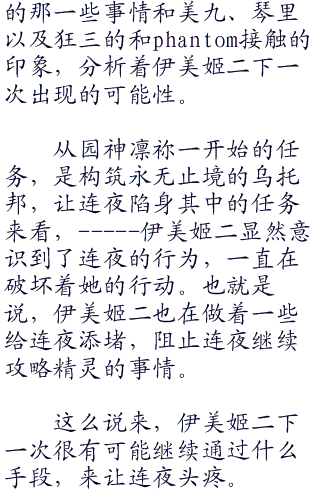 的那一些事情和美九、琴里
以及狂三的和phantom接触的
印象，分析着伊美姬二下一
次出现的可能性。
从园神凛祢一开始的任
务，是构筑永无止境的乌托
邦，让连夜陷身其中的任务
来看，-----伊美姬二显然意
识到了连夜的行为，一直在
破坏着她的行动。也就是
说，伊美姬二也在做着一些
给连夜添堵，阻止连夜继续
攻略精灵的事情。
这么说来，伊美姬二下
一次很有可能继续通过什么
手段，来让连夜头疼。